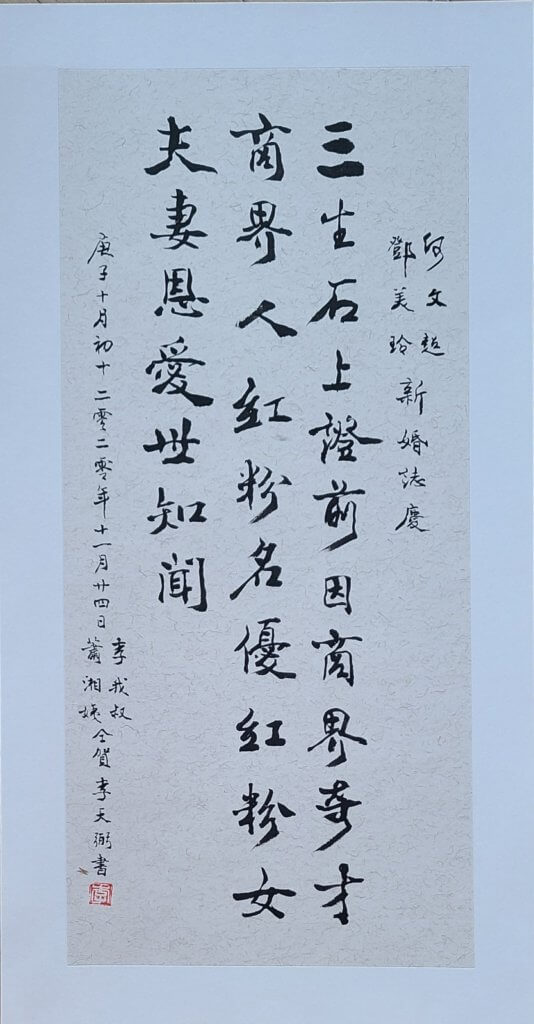 何文超
鄧美玲
新婚誌慶
三生石上證前因商界奇才
商界人紅粉名優紅粉女
夫妻恩愛世知聞
庚子十月初十二零二零年十一月廿四日
李我叔
蕭湘姨
仝賀李天弼書